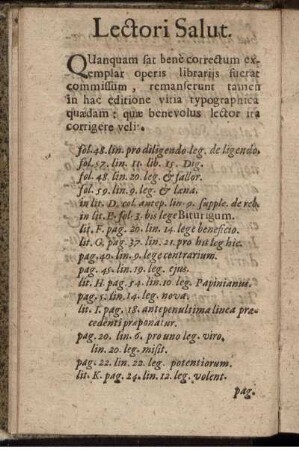 Lectori Salut.
QUanquam sat bene correctum ex-
emplar operis librarijs fuerat
commissum, remanserunt tamen
in hac editione vitia typographica
quædam: quæ benevolus lector ita
corrigere velit.
fol. 48. lin. pro diligendo leg. de ligendo.
fol. 57. lin. 11. lib. 15. Dig.
fol. 48. lin. 20. leg. & fallor.
fol. 59. lin. 9. leg. & læna.
in lit. D. col. antep. lin. 9. supple. de reb.
in lit. E. fol. 3. bis lege Biturigum.
lit. F. pag. 20. lin. 14. lege beneficio.
lit. G. pag. 37. lin. 21. pro hit leg hic.
pag. 40. lin. 9. lege contrarium.
pag. 45. lin. 19. leg. ejus.
lit. H. pag. 54. lin. 10. leg. Papinianus.
pag. lin. 14. leg. nova.
lit. I. pag. 18. antepenultima linea præ-
cedenti præponatur.
pag. 20. lin. 6. pro uno leg. viro.
lin. 20. leg. misit.
pag. 22. lin. 22. leg. potentiorum.
lit. K. pag. 24. lin. 12. leg. volent.
pag.